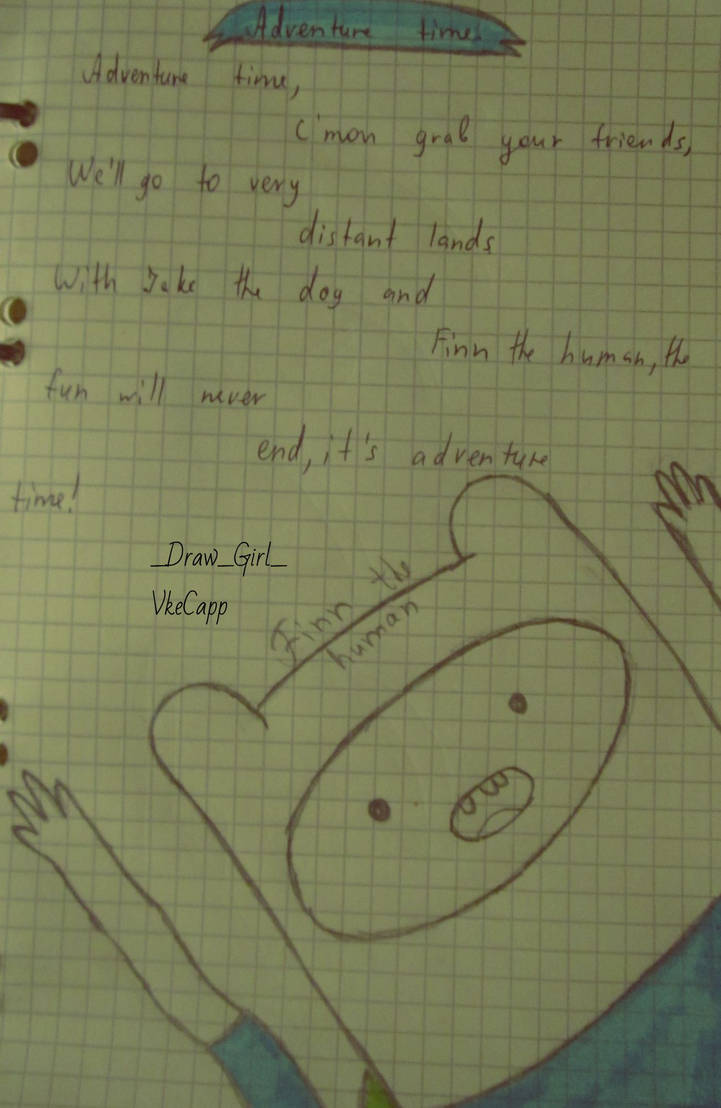 Adventure time
Adventure time,
c'mon grab your friends,
We'll go to very
distant lands
With Jake the dog and
Finn the human, the
fun will never
end, it's adventure
time!
_Draw_Girl_
VkeCapp
Finn the
human